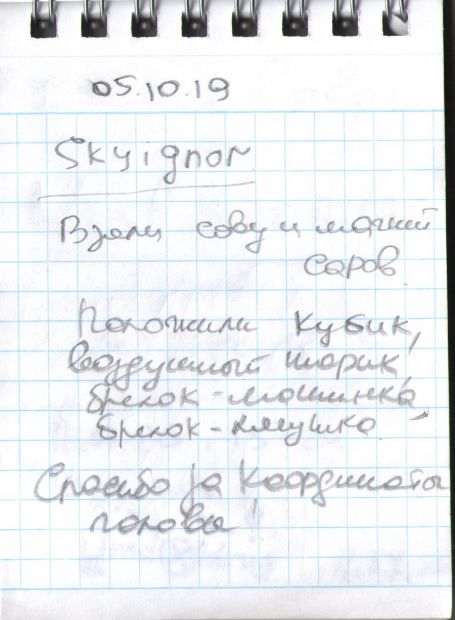 05.10.19
Skyignor
Взяли сову и магнит
Саров.
Положили кубик,
воздушный шарик,
брелок-машинка,
брелок-лягушка.
Спасибо за координаты
головы!